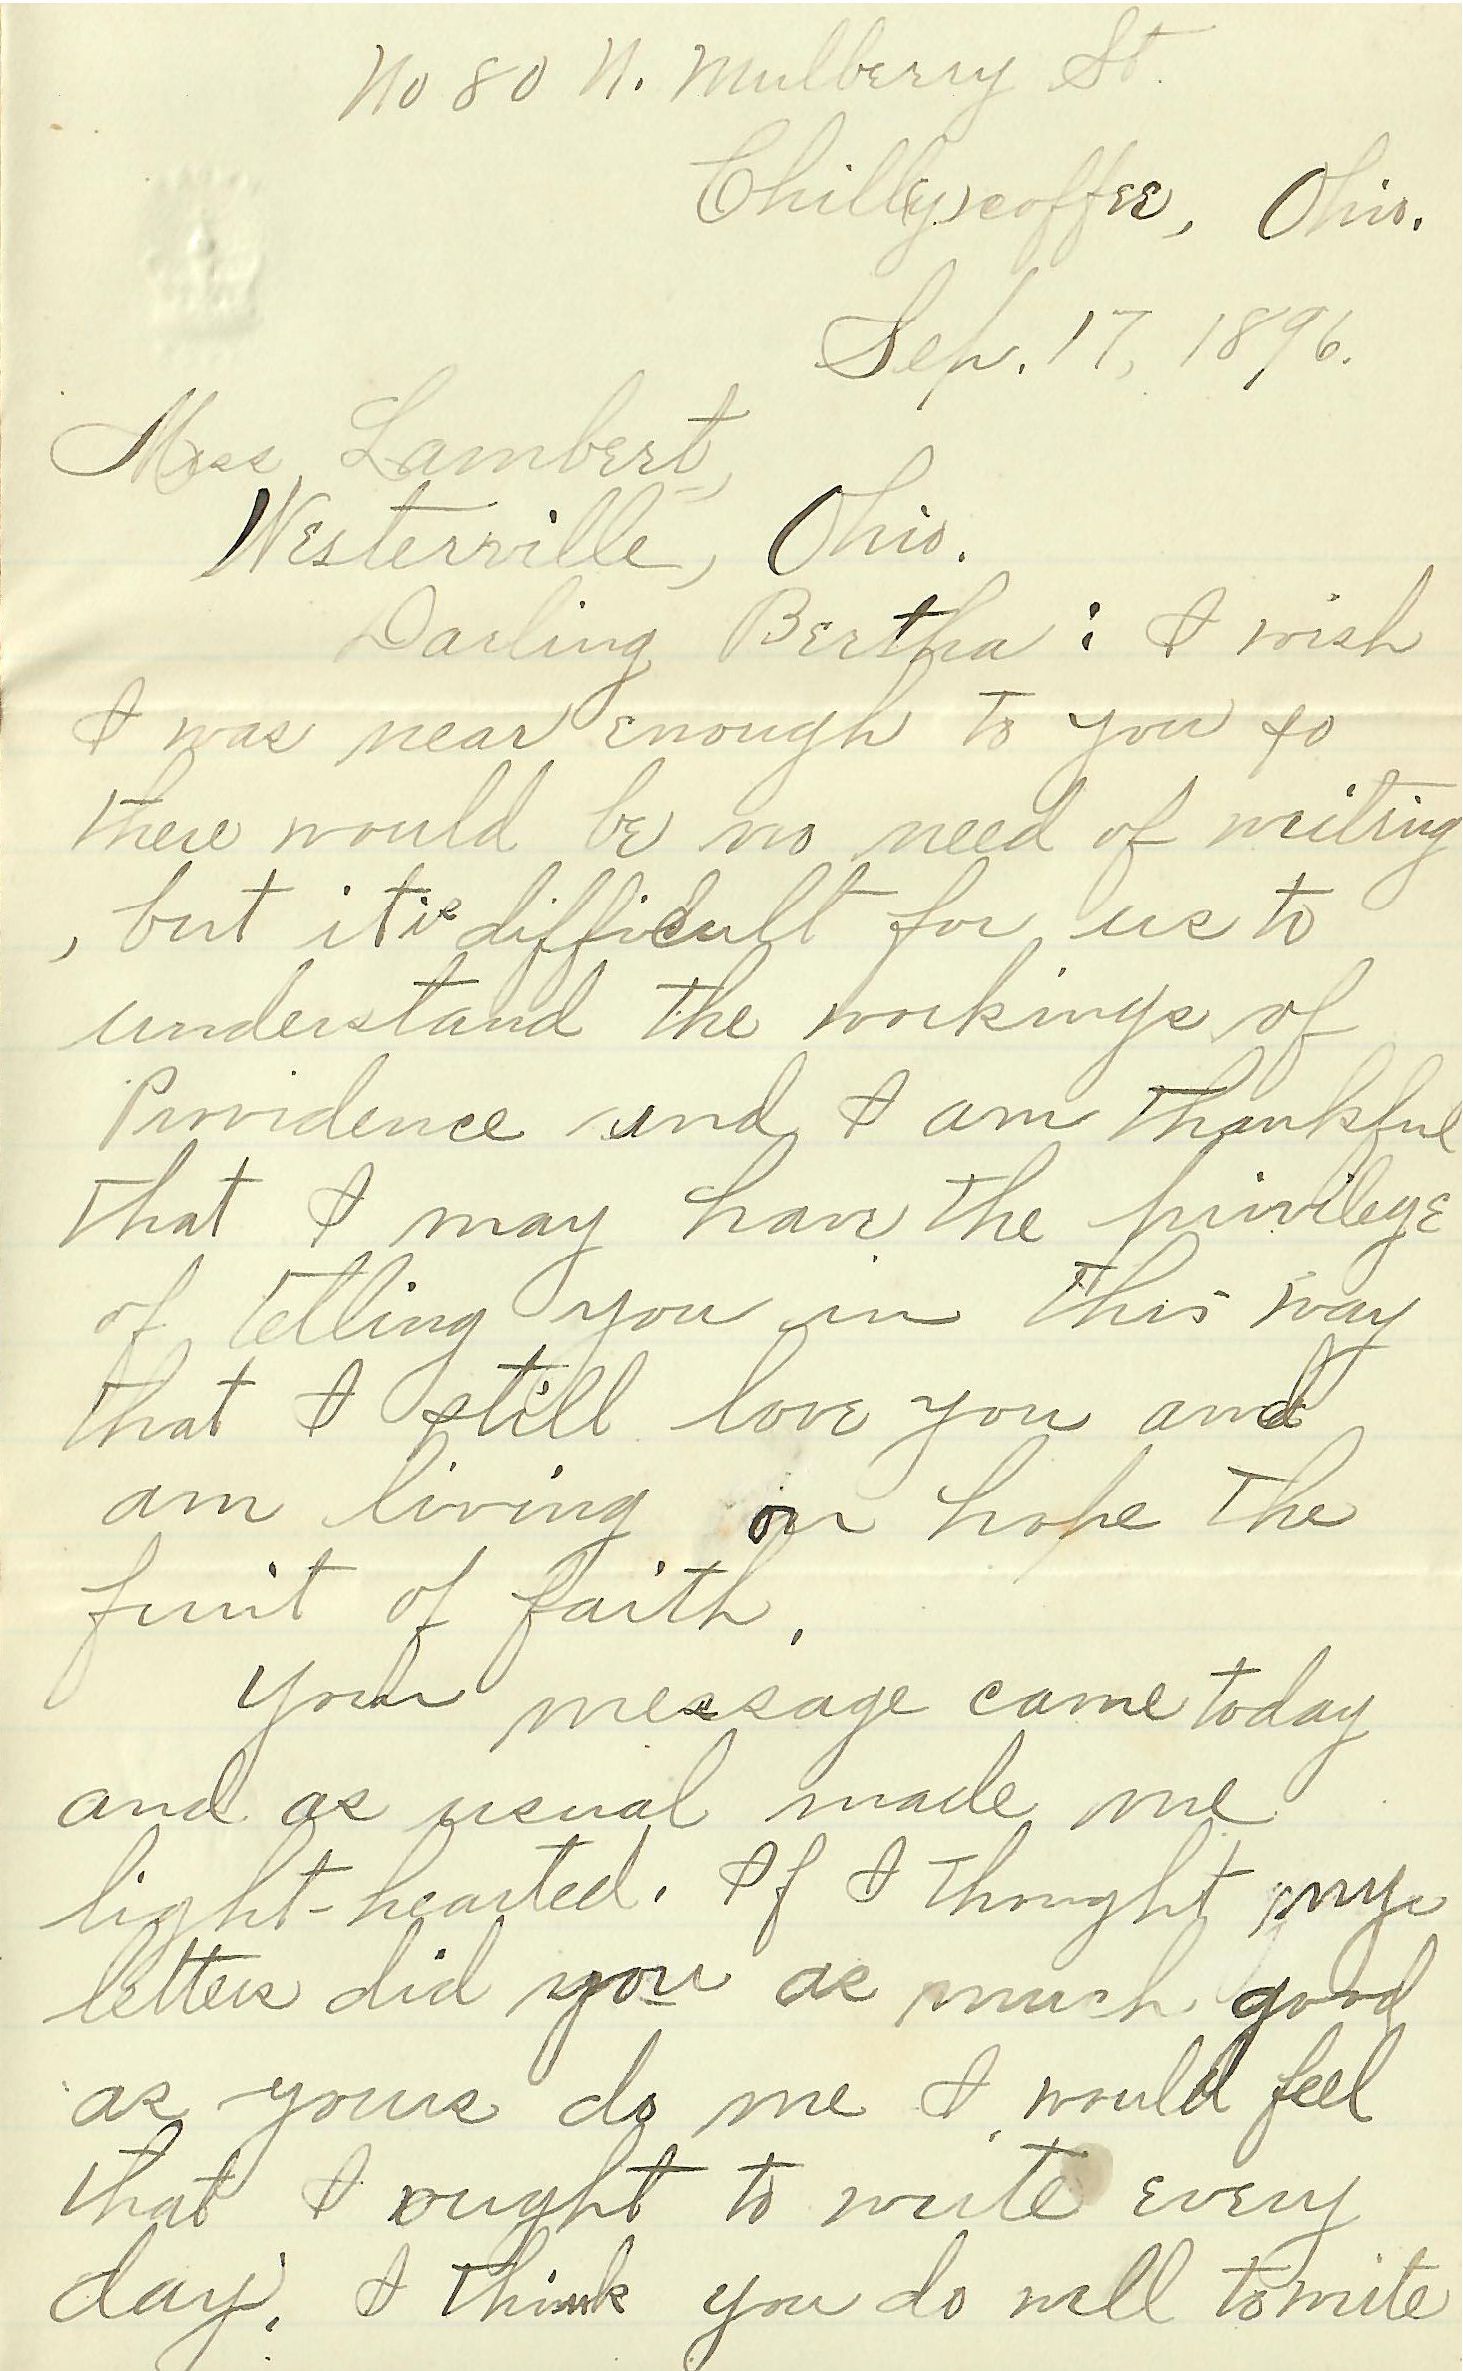 No 80 N. Mulberry St.
Chilly(y)coffee, Ohio.
Sep. 17, 1896.
Miss Lambert,
Westerville, Ohio.
Darling Bertha: I wish
I was near enough to you so
there would be no need of writing
, but it is difficult for us to
understand the workings of
Providence and I am thankful
that I may have the privilege
of telling you in this way
that I still love you and
am living on hope the
fruit of faith.
Your message came today
and as usual made me
light-hearted. If I thought my
letters did you as much good
as yours do me I would feel
that I ought to write every
day. I think you do well to write